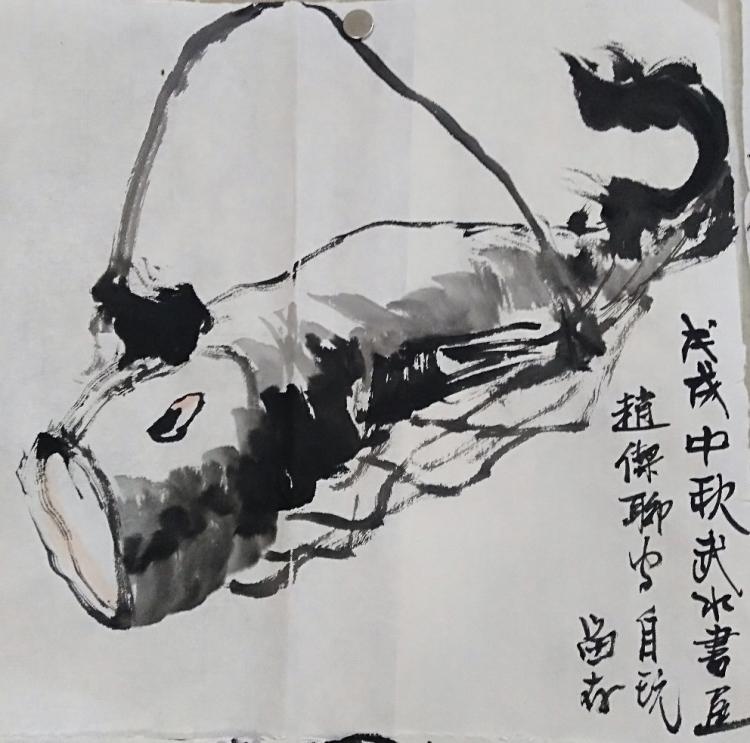 戊戌中秋武水書屋
趙傑聊写自玩
留存